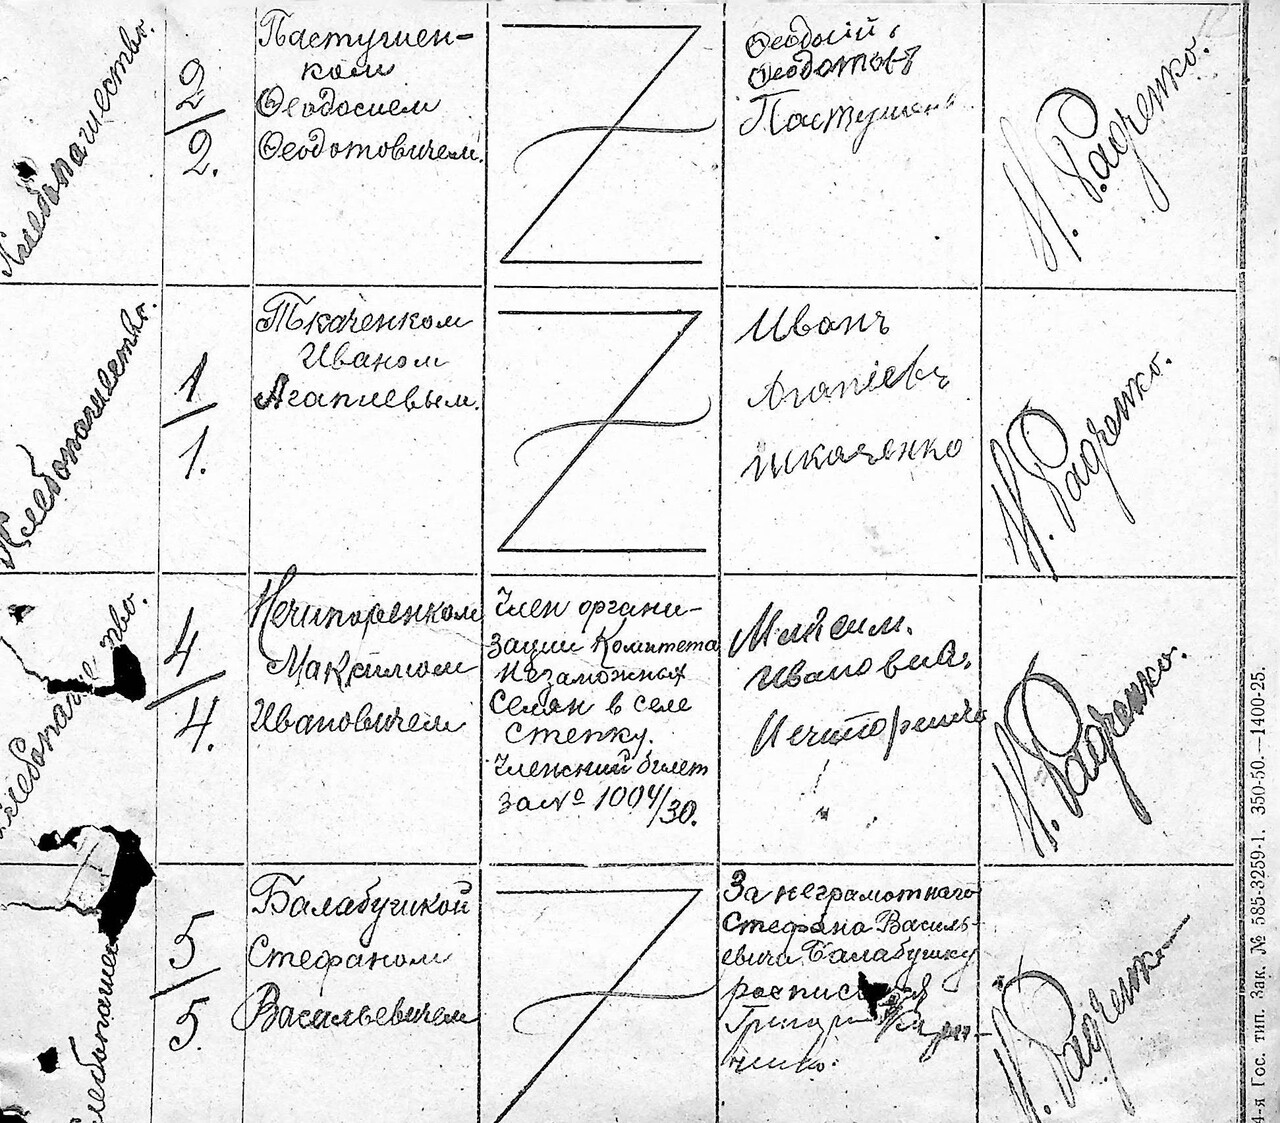 Хлебопашество.
2/2.
Пастушен-
ком
Ѳеодосием
Ѳеодотовичем.
Ѳеодосій
Ѳеодотовъ
Пастушен
И. Радченко.
Хлебопашество.
1/1.
Ткаченком
Иваном
Агапиевым.
Иванъ
Агапіевъ
Ткаченко
И. Радченко.
4/4.
Нечипоренком
Максимом
Ивановичем
Член органи-
зации Комитета
Незаможных
Селян в селе
Степку.
Членский билет
за № 1004/30.
Максим.
Иванович
Нечипоренко
И. Радченко.
5/5.
Балабушкой
Стефаном
Васильевичем
За неграмотнаго
Стефана Василь-
евича Балабушку
росписался
И. Радченко
4-я Гос. тип. Зак. № 585-3259-1. 350-50.—1400-25.